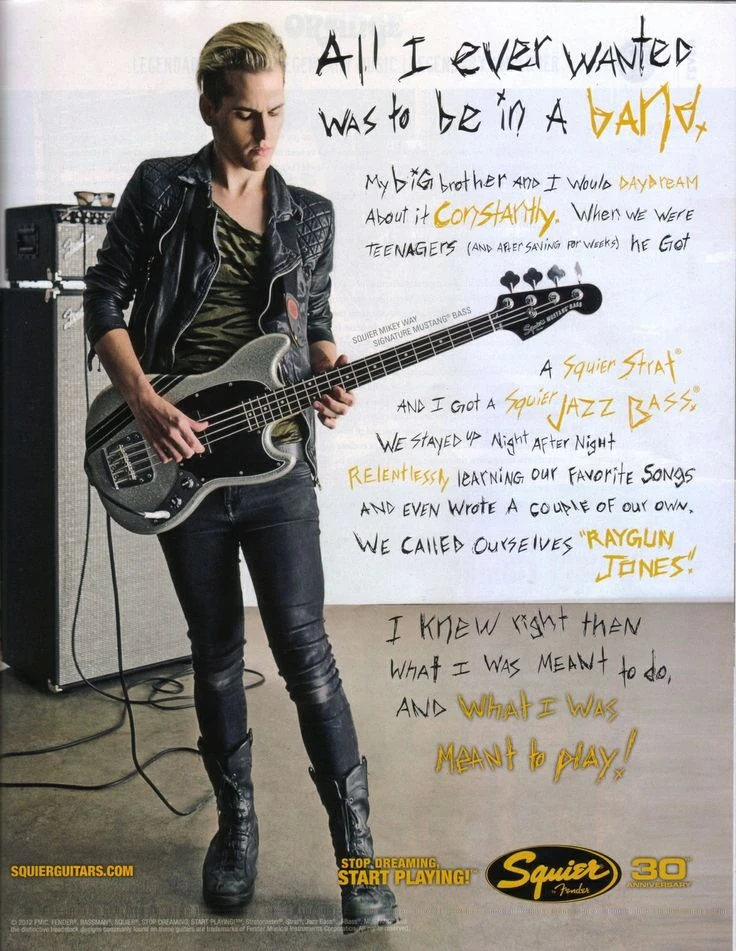 All I ever wanted
was to be in a band.
My big brother and I would daydream
about it constantly. When we were
teenagers (and after saving for weeks) he got
SQUIER MIKEY WAY
SIGNATURE MUSTANG® BASS
Squier
MUSTANG BASS
a Squier Strat®
and I got a Squier Jazz Bass®.
We stayed up night after night
relentlessly learning our favorite songs
and even wrote a couple of our own.
We called ourselves "Raygun
Jones".
I knew right then
what I was meant to do,
and what I was
meant to play!
SQUIERGUITARS.COM
STOP DREAMING,
START PLAYING!™
Squier®
by Fender
30th
ANNIVERSARY
© 2012 FMIC. FENDER®, BASSMAN®, SQUIER®, STOP DREAMING, START PLAYING!™, Stratocaster®, Strat®, Jazz Bass®, J-Bass®,
the distinctive headstock designs commonly found on these guitars are trademarks of Fender Musical Instruments Corporation. All rights reserved.